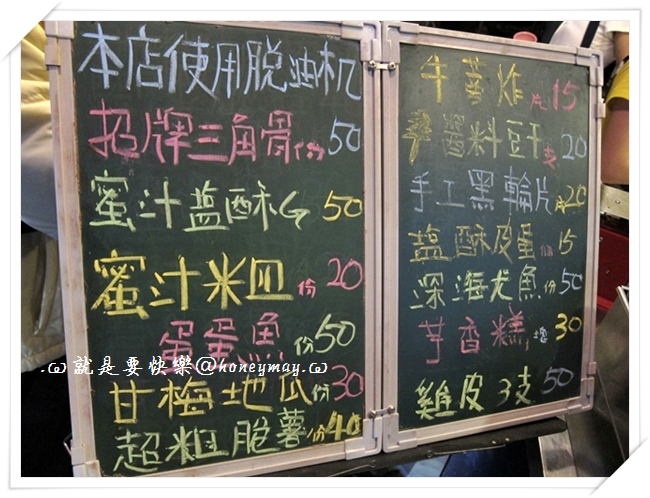 本店使用脫油机
招牌三角骨份50
蜜汁盐酥G 50
蜜汁米血份20
蛋蛋魚份50
甘梅地瓜份30
超粗脆薯份40
牛蒡炸片15
醬料豆干支20
手工黑輪片20
塩酥皮蛋個15
深海尤魚份50
芋香糕塊30
雞皮3支50
.ω就是要快樂@honeymay.ω